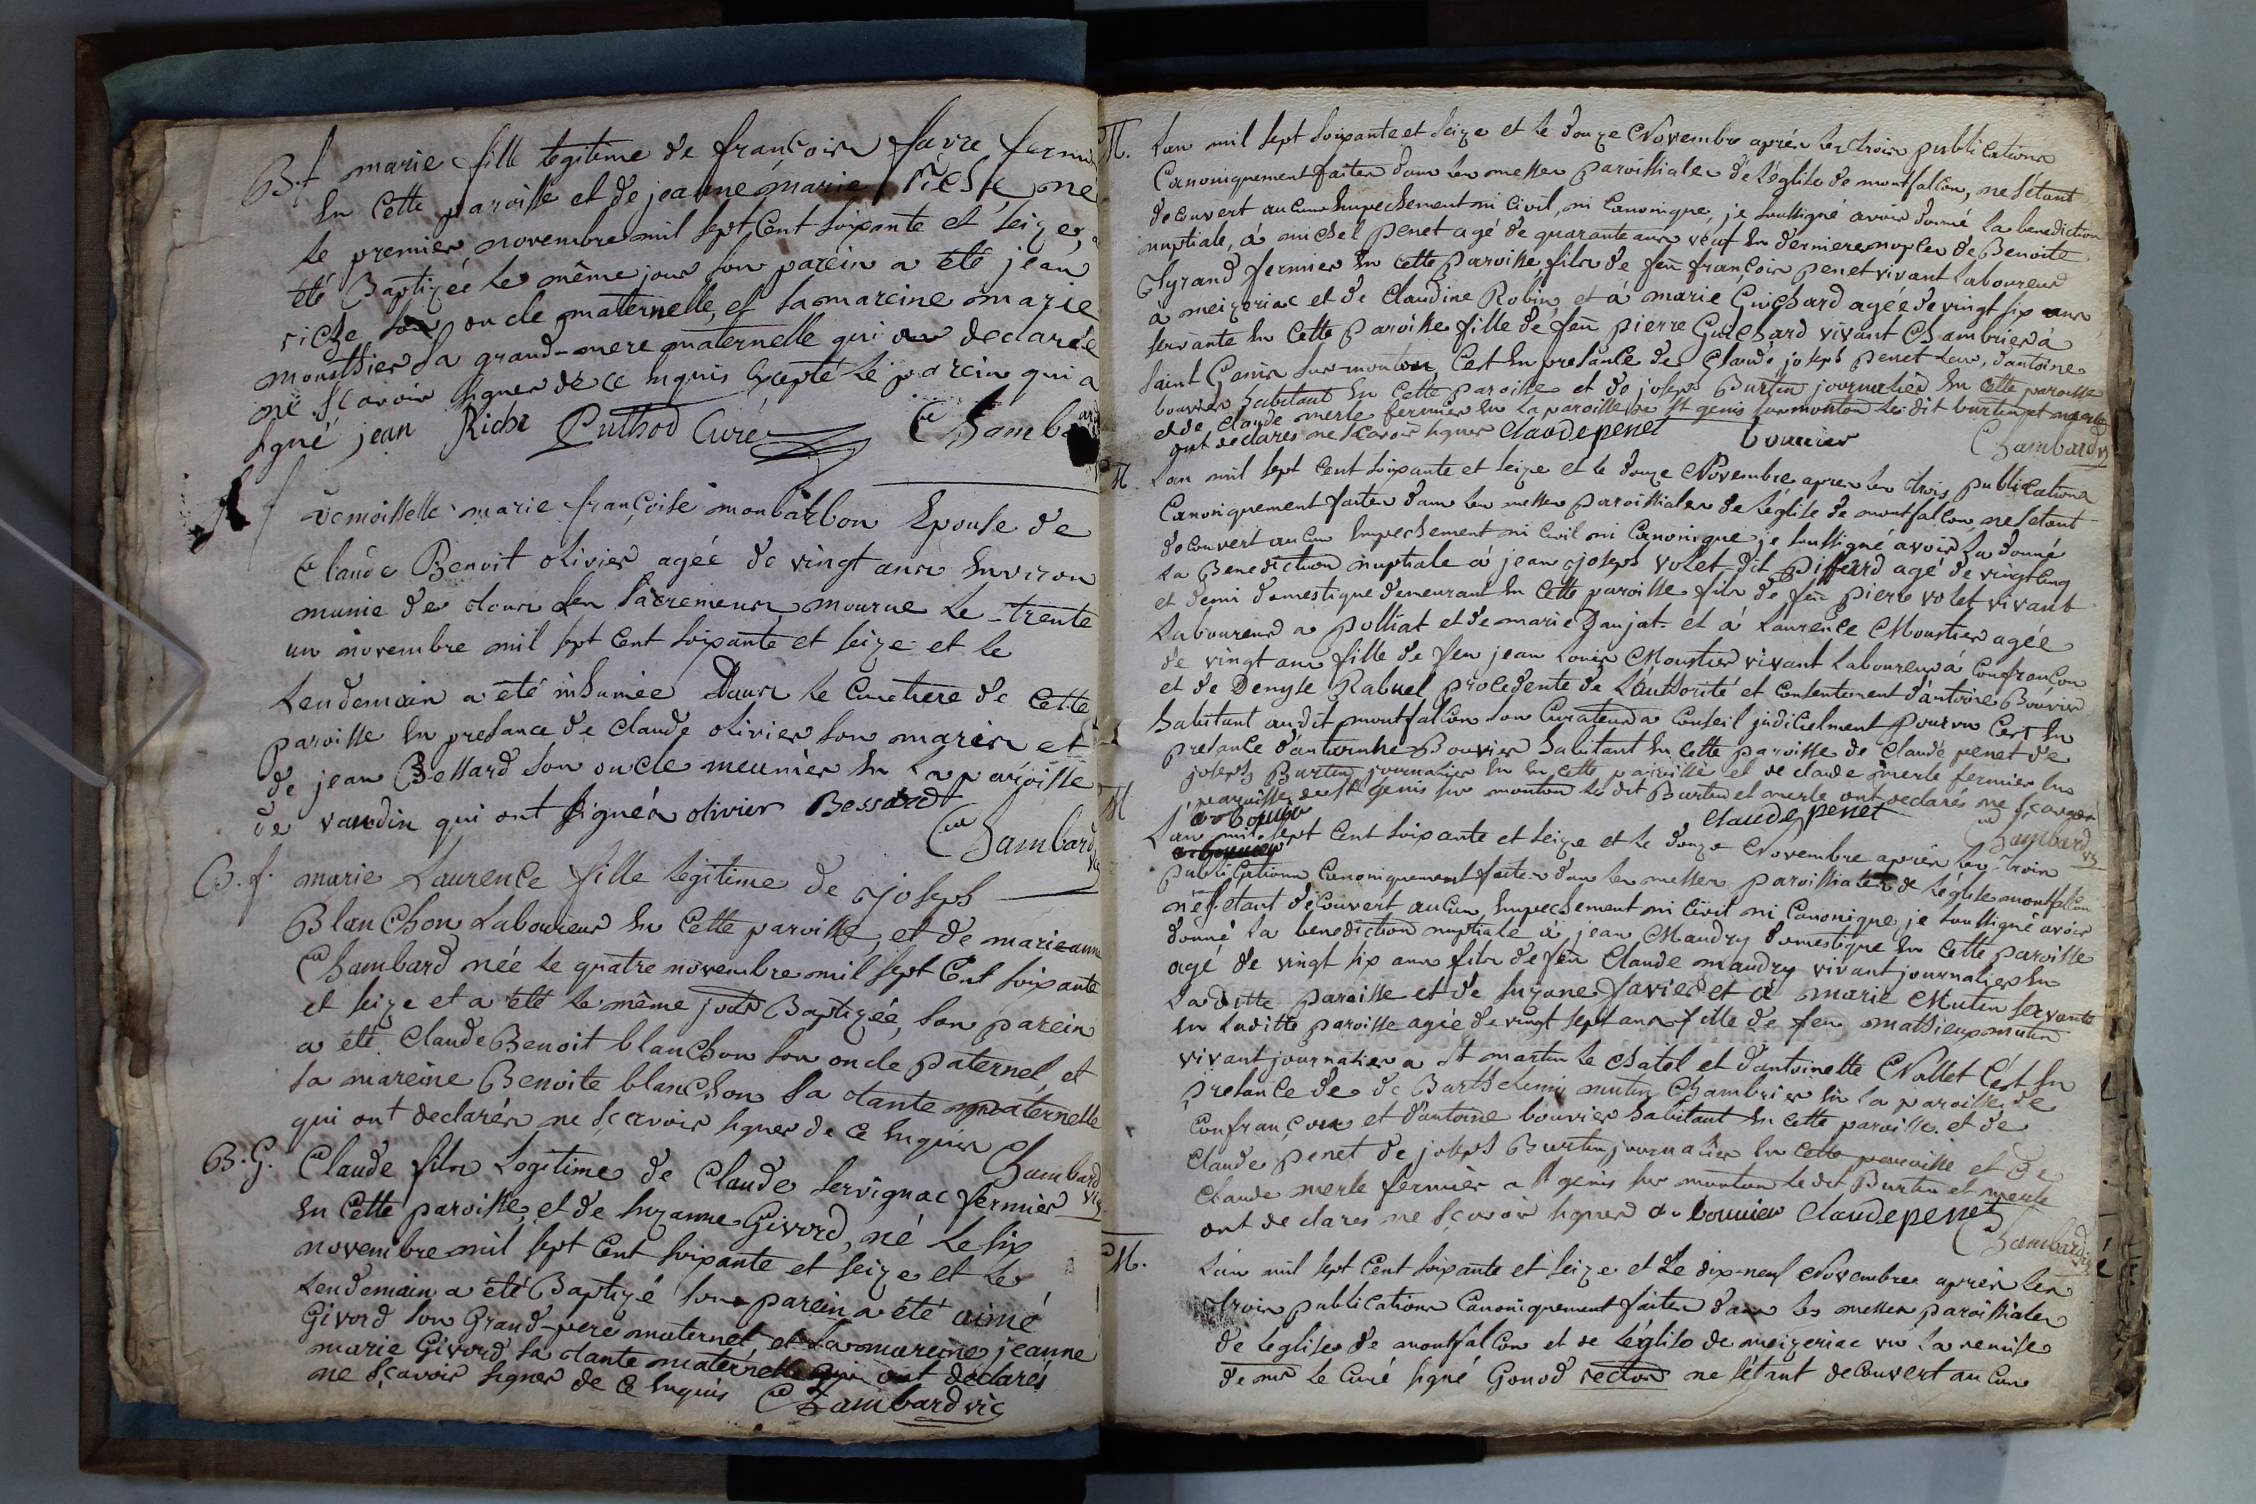 B.f marie fille legitime de françois favre fermi
En Cette paroisse et de jeanne marie riche ne
le premier novembre mil sept Cent soixante et seize, a
été Baptizée le même jour son parein a été jean
riche son oncle maternelle, et sa mareine marie
monsthier sa grand-mere maternelle qui declarée
ne sçavoir signer de ce enquis Excepté le parein qui a
signé jean Riche Puthod Curé Chambard
demoisselle marie françoise monbarbon Epouse de
Claude Benoit olivier agée de vingt ans Environ
munie de tous les sacremens mourue le trente
un novembre mil sept Cent soixante et seize et le
Lendemain a été inhumée Dans le Cimetiere de Cette
paroisse En presance de Claude olivier son maris et
de jean Bessard son oncle meunier En la paroisse
de vandin qui ont signés olivier Bessard
Chambard vic
B.f. marie Laurence fille legitime de joseph
Blanchon Laboureur En Cette paroisse, et de marieanne
Chambard née le quatre novembre mil sept Cent soixante
et seize et a été le même jour Baptizée, son parein
a été Claude Benoit blanchon son oncle paternel, et
sa mareine Benoite blanchon sa tante paternelle
qui ont declarés ne sçavoir signer de ce enquis
Chambard vic
B.G. Claude fils Legitime de Claude servignac fermier
En Cette paroisse, et de suzanne Givord, né le six
novembre mil sept Cent soixante et seize et le
Lendemain a été Baptizé son parein a été aimé
Givord son Grand-pere maternel et sa mareine jeanne
marie Givord sa tante maternelle qui ont declarés
ne sçavoir signer de ce enquis Chambard vic
M. Lan mil sept soixante et seize et le douze Novembre aprés les trois publications
Canoniquement faites dans les messes paroissiales de l'église de montfalcon, ne sétant
decouvert aucun Empechement ni Civil, ni Canonique, je soussigné avoir donné la benediction
nuptiale, á michel penet agé de quarante ans veuf En derniere nopces de Benoite
fermier En cette paroisse, fils de feu françois penet vivant Laboureur
à meizeriac et de Claudine Robin, et á marie Guichard agée de vingt six ans
servante En Cette paroisse fille de feu pierre Guichard vivant Chambrier á
saint Genis sur monton, Cest En presance de Claude joseph penet d'antoine
bouvier habitant En Cette paroisse et de joseph Burtin journalier En Cette paroisse
et de Claude merle fermier En la paroisse de St genis sur monton le dit burtin et merle
ont declares ne sçavoir signer Claudepenet bouvier Chambard v
M Lan mil sept Cent soixante et seize et le douze Novembre apres les trois publications
Canoniquement faites dans les messes paroissiales de l'église de montfalcon ne setant
decouvert aucun Empechement ni Civil ni Canonique je soussigné avoir la donné
la Benediction nuptiale á jean joseph volet dit Piffard agé de vingtcinq
et demi domestique demeurant En cette paroisse fils de feu pierre volet vivant
Laboureur a Polliat et de marie Danjat et á Laurence Moustier agée
de vingt ans fille de feu jean Louis Moustier vivant Laboureur á Confrançon
et de Denyse Rabuel procedente de L'authorité et consentement d'antoine Bouvier
habitant audit montfalcon son Curateur a Conseil judicielment pourvu Cest En
presance d'antoine Bouvier habitant En cette paroisse de Claude penet de
joseph Burtin journalier En En cette paroisse et de claude merle fermier En
paroisse de St genis sur monton le dit Burtin et merle ont declarés ne sçavoir
Claudepenet Chambard vic
M L'an mil sept Cent soixante et seize et le douze Novembre aprés les trois
publications Canoniquement faites dans les messes paroissiales de Léglise montfalcon
ne setant découvert aucun Empechement ni Civil ni Canonique, je soussigné avoir
donné la benediction nuptiale á jean Maudry domestique En Cette paroisse
agé de vingt six ans fils de feu Claude maudry vivant journalier En
la ditte paroisse et de suzane favier et á marie Mutin servante
En laditte paroisse agée de vingt sept ans fille de feu mathieu mutin
vivant journalier a St martin le Chatel et d'antoinette Nallet C'est En
presance de de Barthelemi mutin Chambrier En la paroisse de
Confrançon et d'antoine bouvier habitant En cette paroisse et de
Claude penet de joseph Burtin journalier En Cette paroisse et de
Claude merle fermier a St genis sur monton le dit Burtin et merle
ont declares ne sçavoir signer a bouvier Claudepenet
Chambard vic
M. L'an mil sept Cent soixante et seize et Le dix-neuf Novembre aprés les
trois publications Canoniquement faites dans les messes paroissiales
de Leglise de montfalcon et de Léglise de meizeriac vu la remise
de mr le Curé signé Gonod rector ne s'étant decouvert aucun